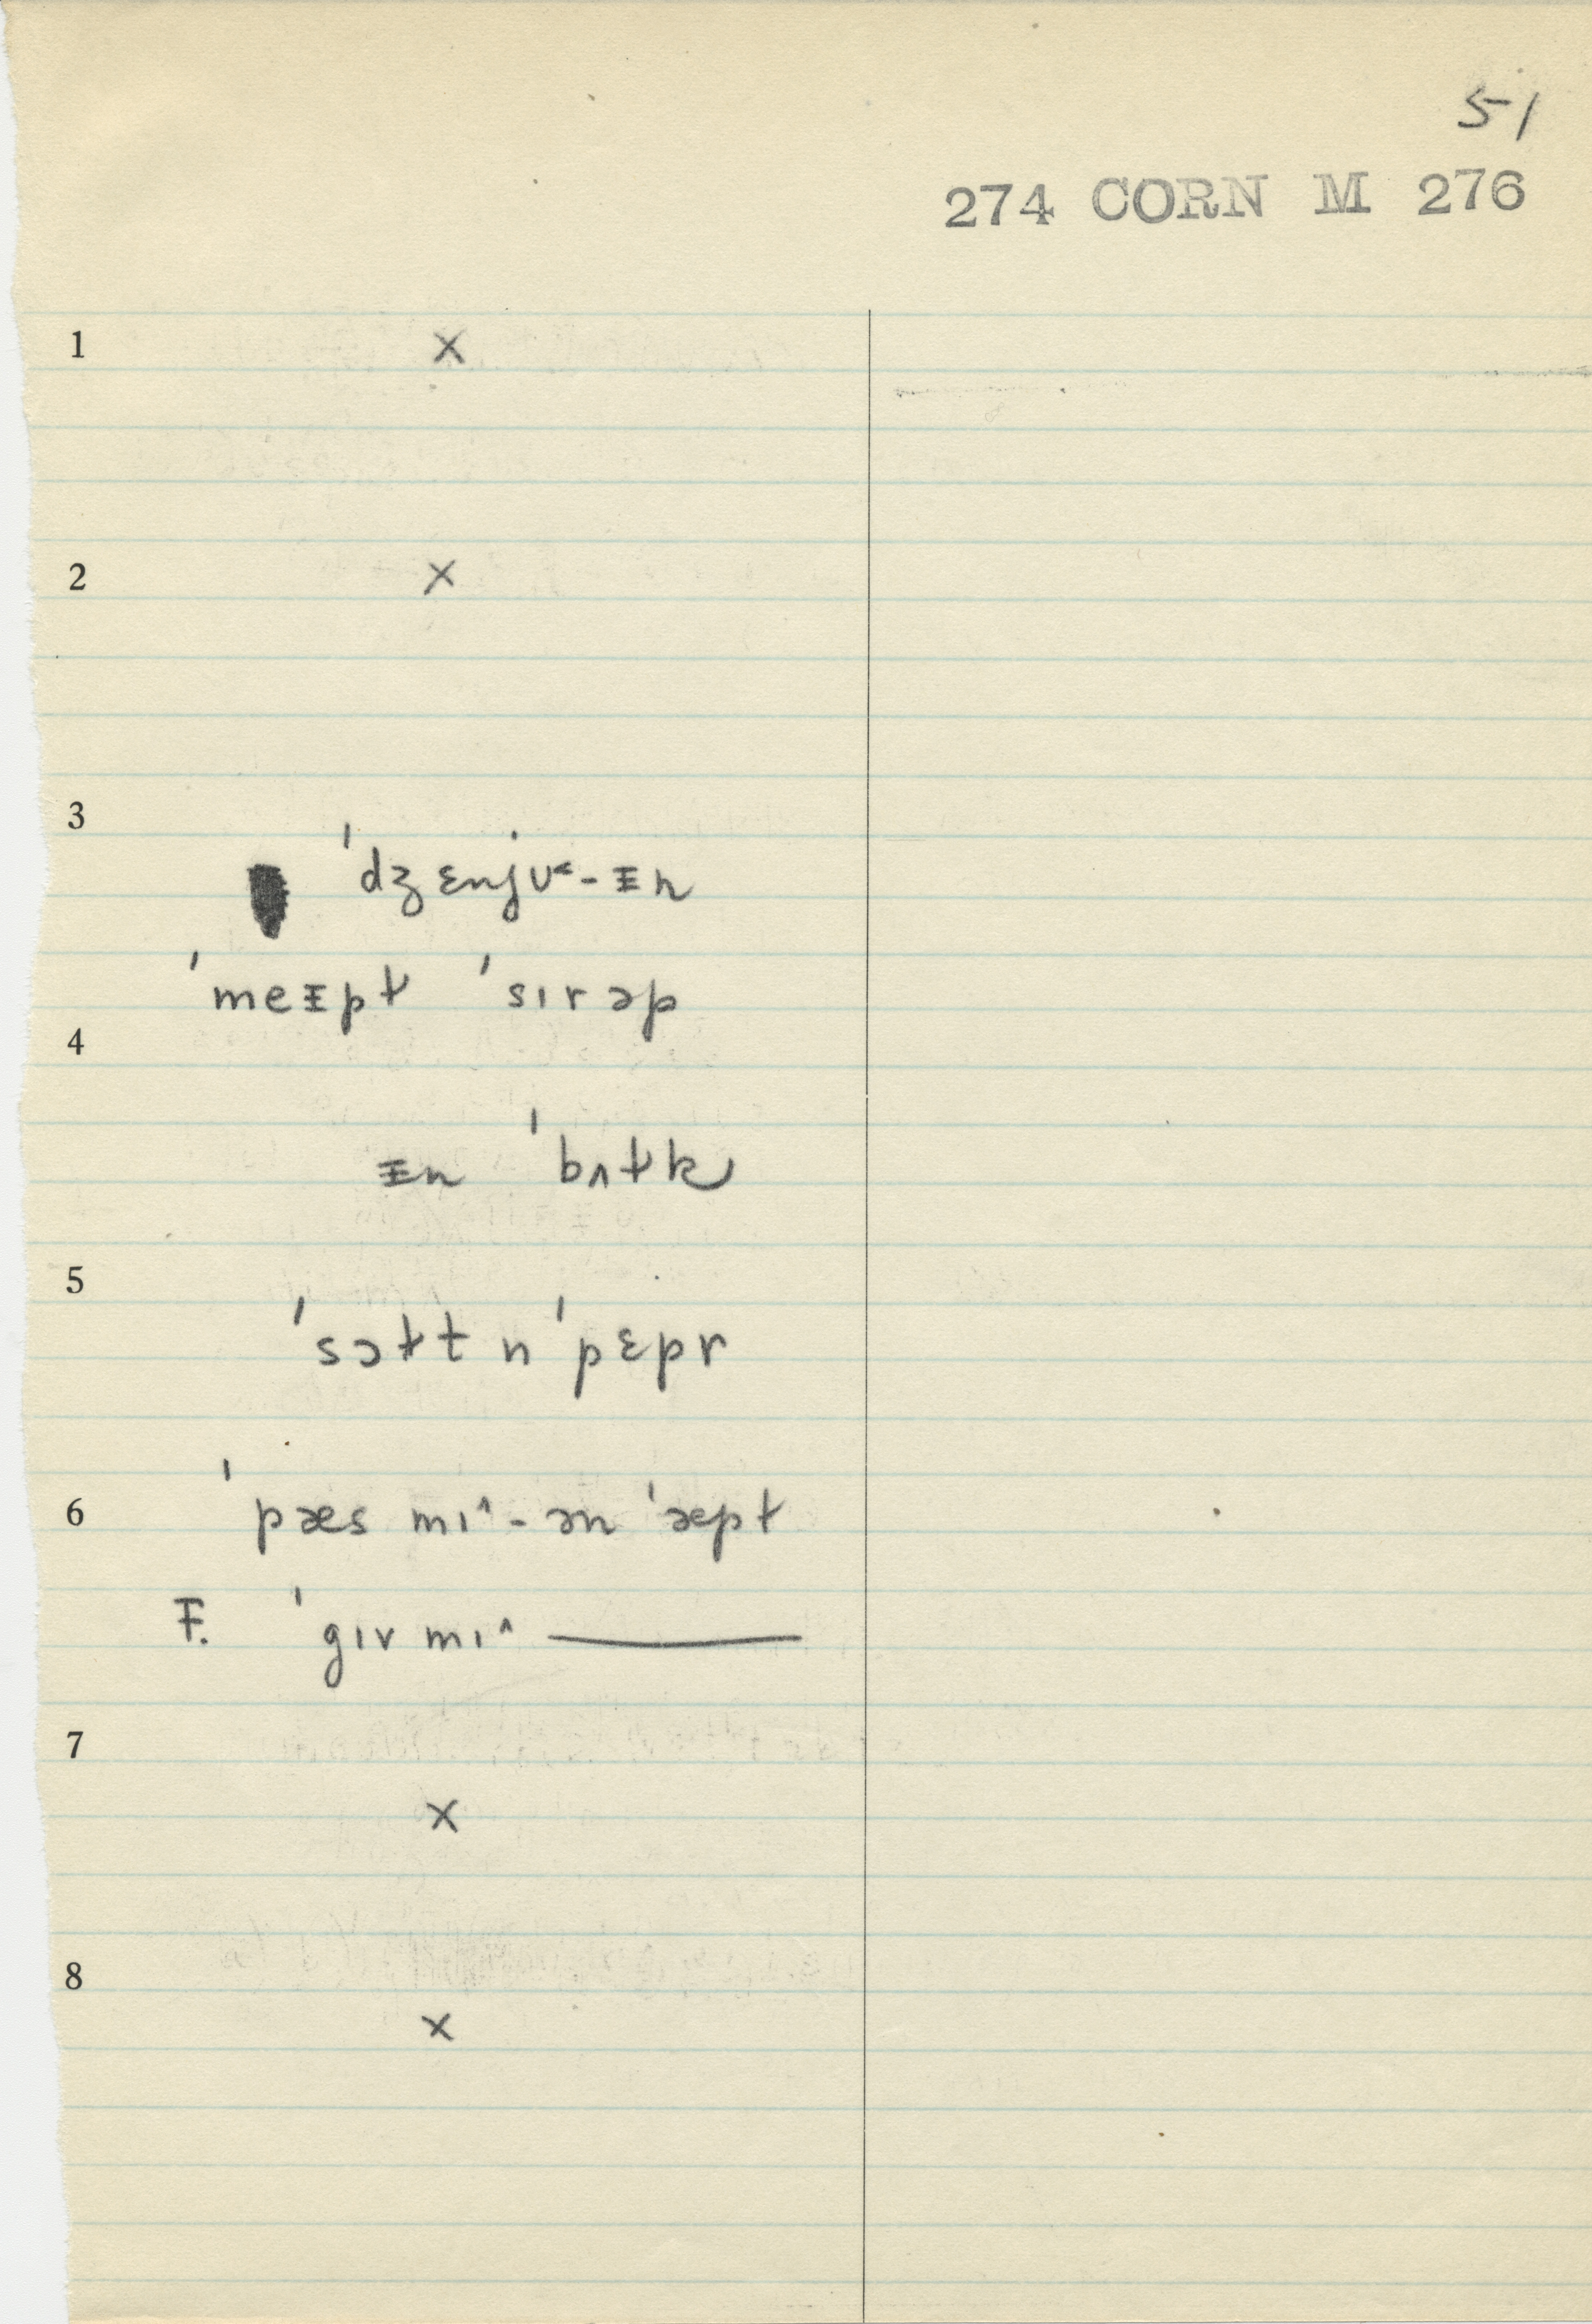 51
274 CORN M 276
1 ×
2 ×
3
ˈdʒɛnjʊ˂-ᵻn
ˈmeᵻpɫ ˈsɪrəp
4
ᵻn ˈbʌɫk
5
ˈsɔɫt n ˈpɛpr
6 ˈpæs mɪ˄-ən ˈæpɫ
F. ˈgɪv mɪ˄ ———
7
×
8
×